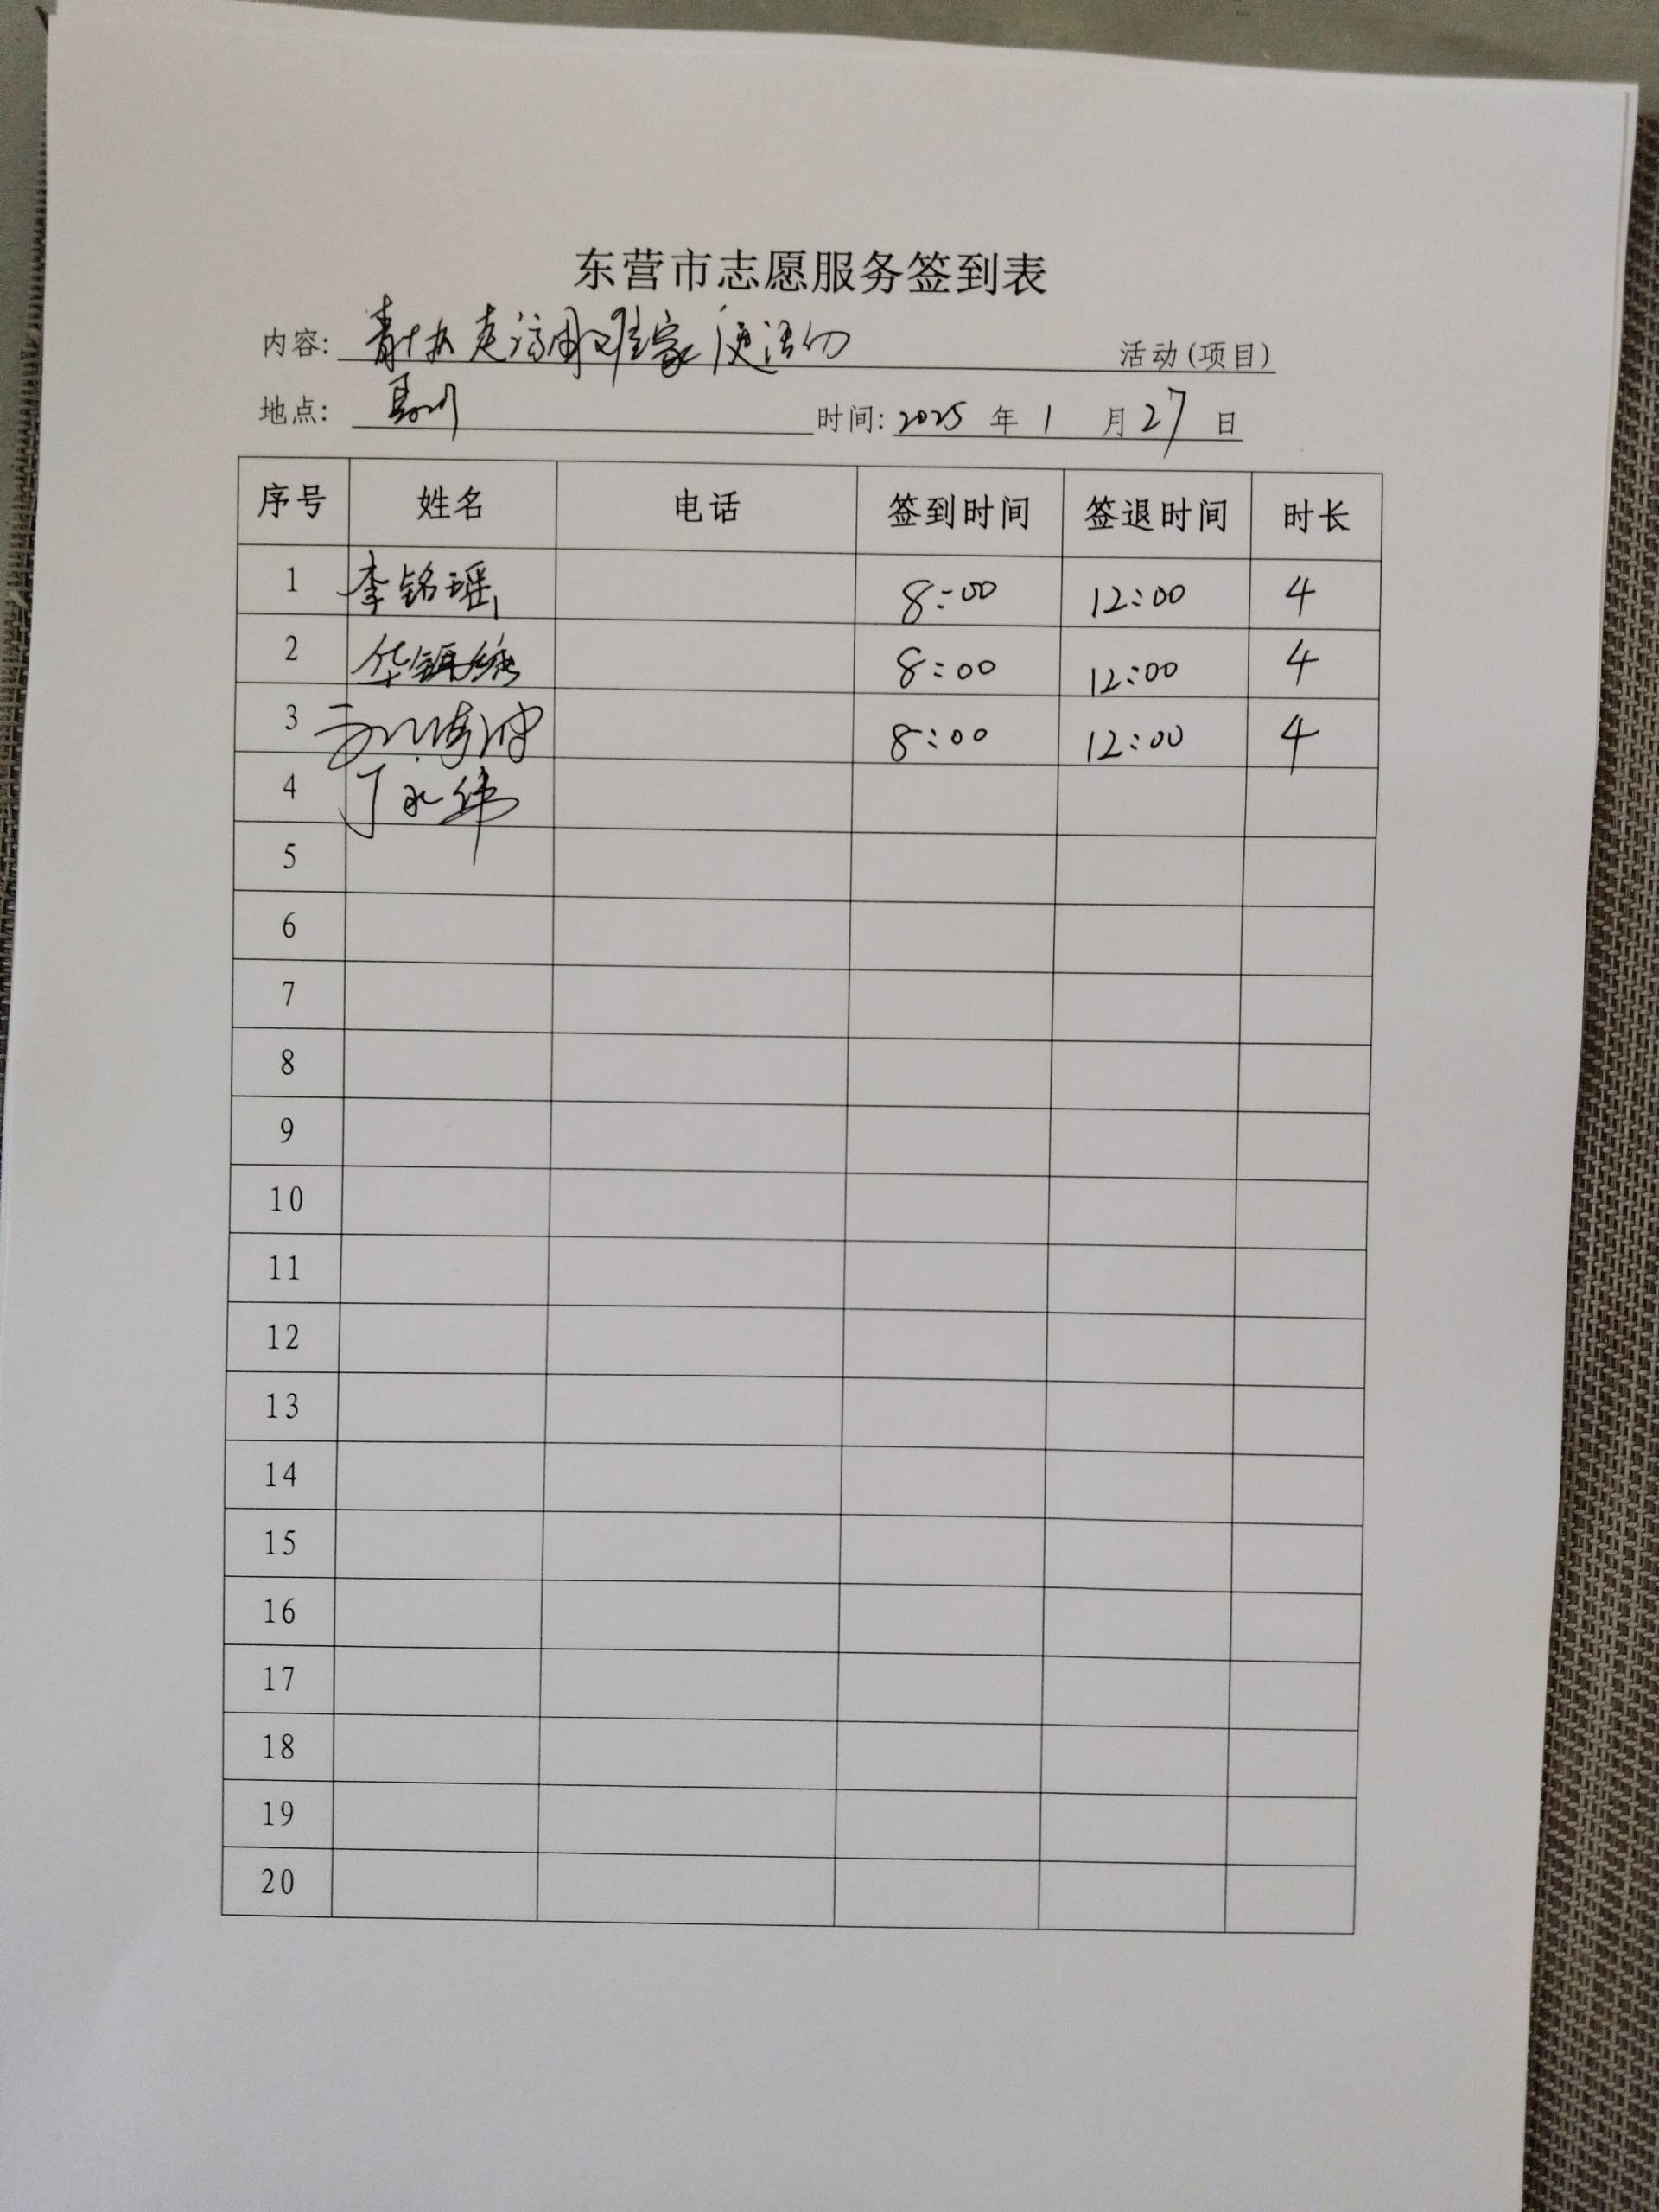 东营市志愿服务签到表
内容: 走访困难家庭活动 活动(项目)
地点: 时间: 2025 年 1 月 27 日
序号 姓名 电话 签到时间 签退时间 时长
1 李铭瑶 8:00 12:00 4
2 8:00 12:00 4
3 8:00 12:00 4
4 丁永伟
5
6
7
8
9
10
11
12
13
14
15
16
17
18
19
20